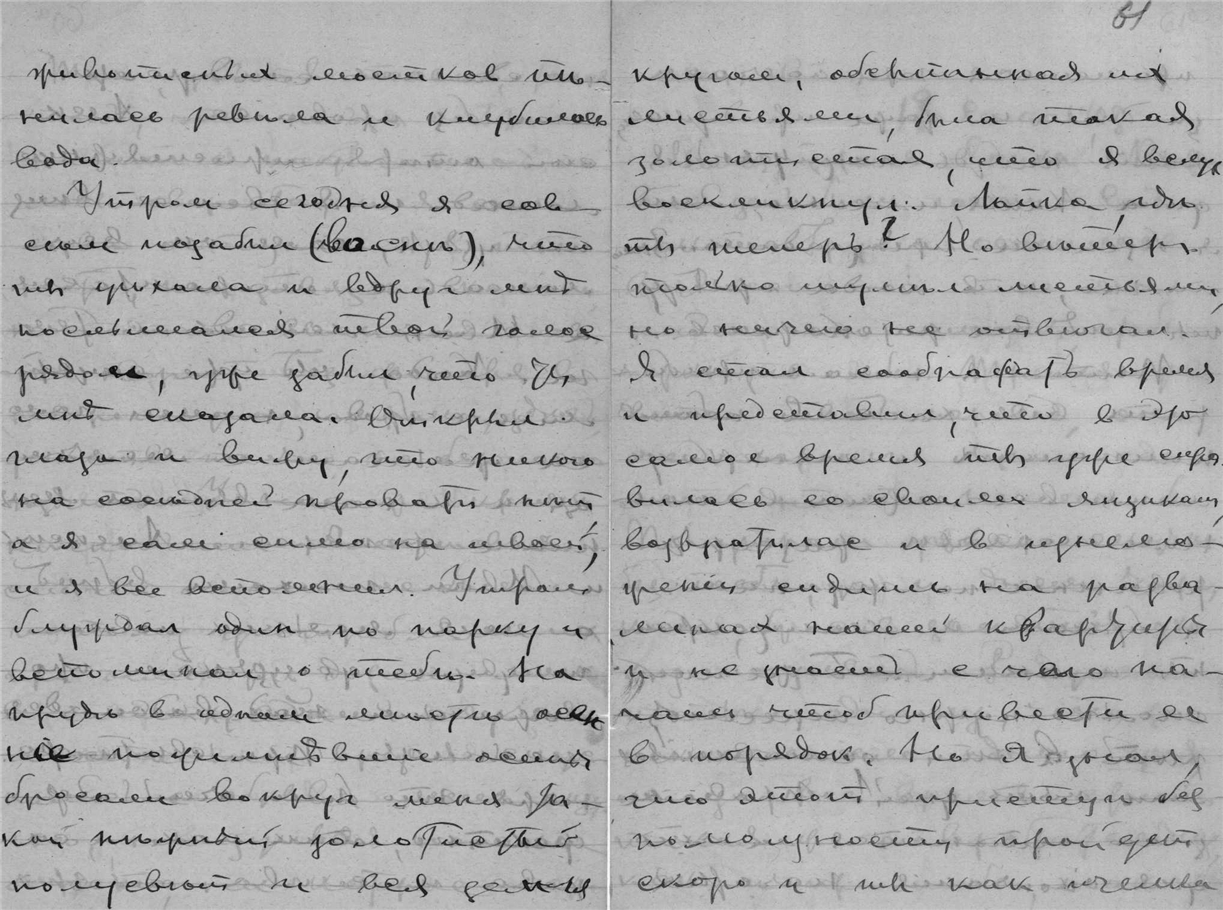 живописных мостков пѣ-
нилась ревѣла и клубилась
вода.
Утром сегодня я сов-
сем позабыл (во снѣ), что
ты уѣхала и вдруг мнѣ
послышался твой голос
рядом, уже забыл, что ты
мнѣ сказала. Открыл
глаза и вижу, что никого
на сосѣдней кровати нѣт,
а я сам сплю на твоей,
и я все вспомнил. Утром
блуждал один по парку и
вспоминал о тебѣ. На
прудѣ в одном мѣстѣ осен
ніе пожелтѣвшіе осины
бросали вокруг меня та-
кой нѣжный золотистый
полусвѣт и вся земля
61
кругом, обсыпанная их
листьями, была такая
золотистая, что я вслух
воскликнул: Лапка, гдѣ
ты теперь? Но вѣтер
только шумѣл листьями,
но ничего не отвѣчал.
Я стал соображать время
и представил, что в это
самое время ты уже спра
вилась со своими ящиками,
возвратилас и в изнемо-
жении сидишь на разва-
линах нашей квартиры
и не знаешь с чего на-
чать чтоб привести ее
в порядок. Но я знал,
что этот приступ без
помощности пройдет
скоро и ты как пчелка